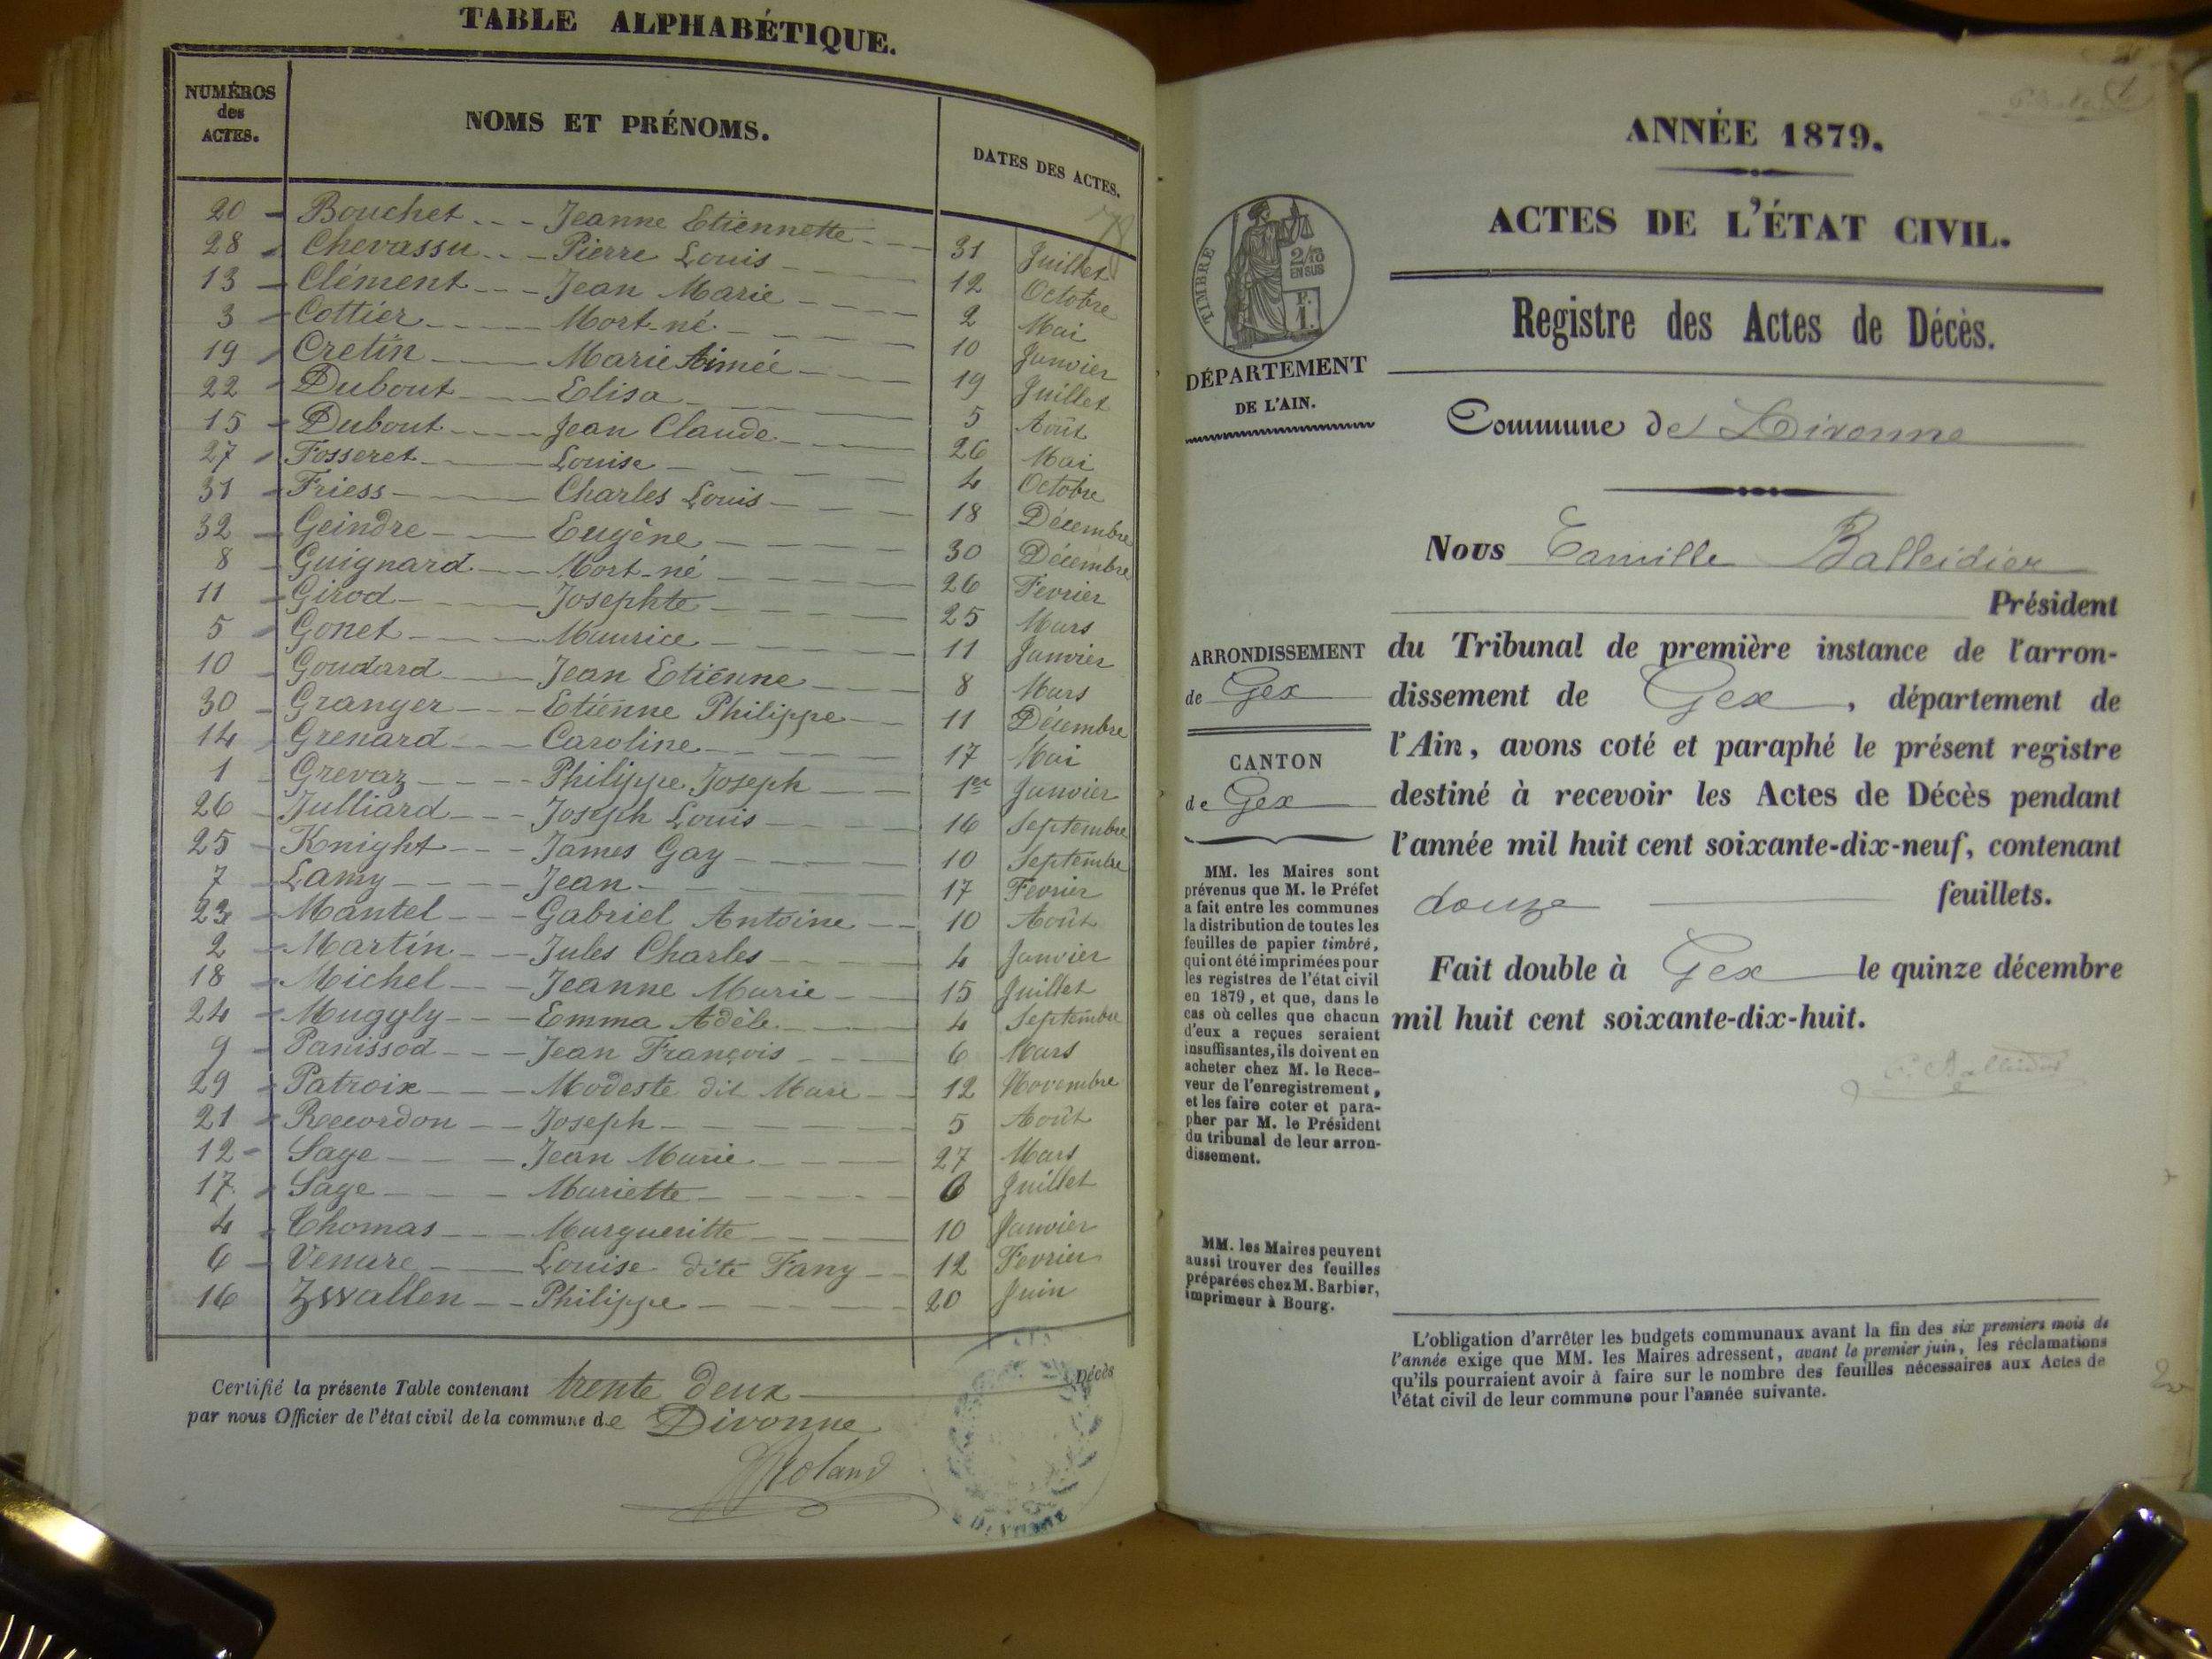 TABLE ALPHABÉTIQUE.
NUMÉROS des ACTES.
NOMS ET PRÉNOMS.
DATES DES ACTES.
78
20 Bouchet Jeanne Etiennette 31 Juillet
28 Chevassu Pierre Louis 12 Octobre
13 Clément Jean Marie 2 Mai
3 Cottier Mort-né 10 Janvier
19 Cretin Marie Aimée 19 Juillet
22 Dubout Elisa 5 Août
15 Dubout Jean Claude 26 Mai
27 Fosseret Louise 4 Octobre
31 Friess Charles Louis 18 Décembre
32 Geindre Eugène 30 Décembre
8 Guignard Mort-né 26 Fevrier
11 Girod Josephte 25 Mars
5 Gonet Maurice 11 Janvier
10 Goudard Jean Etienne 8 Mars
30 Granger Etienne Philippe 11 Décembre
14 Grenard Caroline 17 Mai
1 Grevaz Philippe Joseph 1er Janvier
26 Julliard Joseph Louis 16 Septembre
25 Knight James Gay 10 Septembre
7 Lamy Jean 17 Fevrier
23 Mantel Gabriel Antoine 10 Août
2 Martin Jules Charles 4 Janvier
18 Michel Jeanne Marie 15 Juillet
24 Muggly Emma Adèle 4 Septembre
9 Panissod Jean François 6 Mars
29 Patroix Modeste dit Marc 12 Novembre
21 Recordon Joseph 5 Août
12 Sage Jean Marie 27 Mars
17 Sage Mariette 6 Juillet
4 Thomas Margueritte 10 Janvier
6 Venare Louise dite Fany 12 Fevrier
16 Zwallen Philippe 20 Juin
Certifié la présente Table contenant trente deux Décès
par nous Officier de l'état civil de la commune de Divonne
Roland
ANNÉE 1879.
ACTES DE L'ÉTAT CIVIL.
Registre des Actes de Décès.
TIMBRE
2/13
EN SUS
F.
1.
DÉPARTEMENT
DE L'AIN.
Commune de Divonne
Nous Camille Balleidier
Président
du Tribunal de première instance de l'arron-
dissement de Gex, département de
l'Ain, avons coté et paraphé le présent registre
destiné à recevoir les Actes de Décès pendant
l'année mil huit cent soixante-dix-neuf, contenant
douze feuillets.
Fait double à Gex le quinze décembre
mil huit cent soixante-dix-huit.
C. Balleidier
ARRONDISSEMENT
de Gex
CANTON
de Gex
MM. les Maires sont
prévenus que M. le Préfet
a fait entre les communes
la distribution de toutes les
feuilles de papier timbré,
qui ont été imprimées pour
les registres de l'état civil
en 1879, et que, dans le
cas où celles que chacun
d'eux a reçues seraient
insuffisantes, ils doivent en
acheter chez M. le Rece-
veur de l'enregistrement,
et les faire coter et para-
pher par M. le Président
du tribunal de leur arron-
dissement.
MM. les Maires peuvent
aussi trouver des feuilles
préparées chez M. Barbier,
imprimeur à Bourg.
L'obligation d'arrêter les budgets communaux avant la fin des six premiers mois de
l'année exige que MM. les Maires adressent, avant le premier juin, les réclamations
qu'ils pourraient avoir à faire sur le nombre des feuilles nécessaires aux Actes de
l'état civil de leur commune pour l'année suivante.